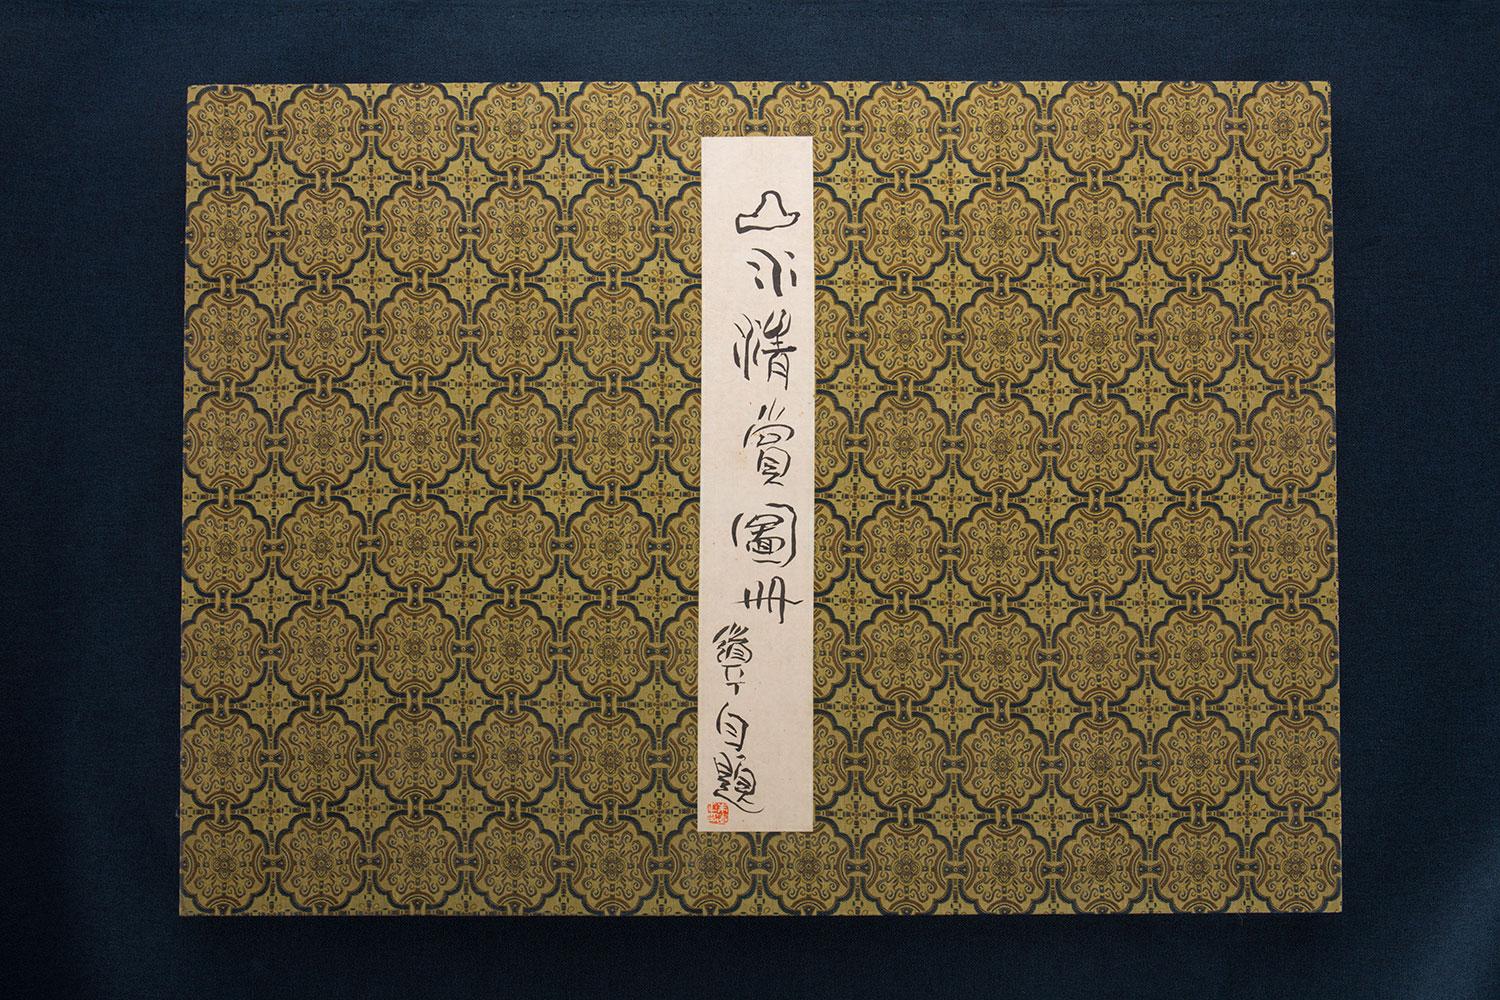 山水清賞圖冊
自題